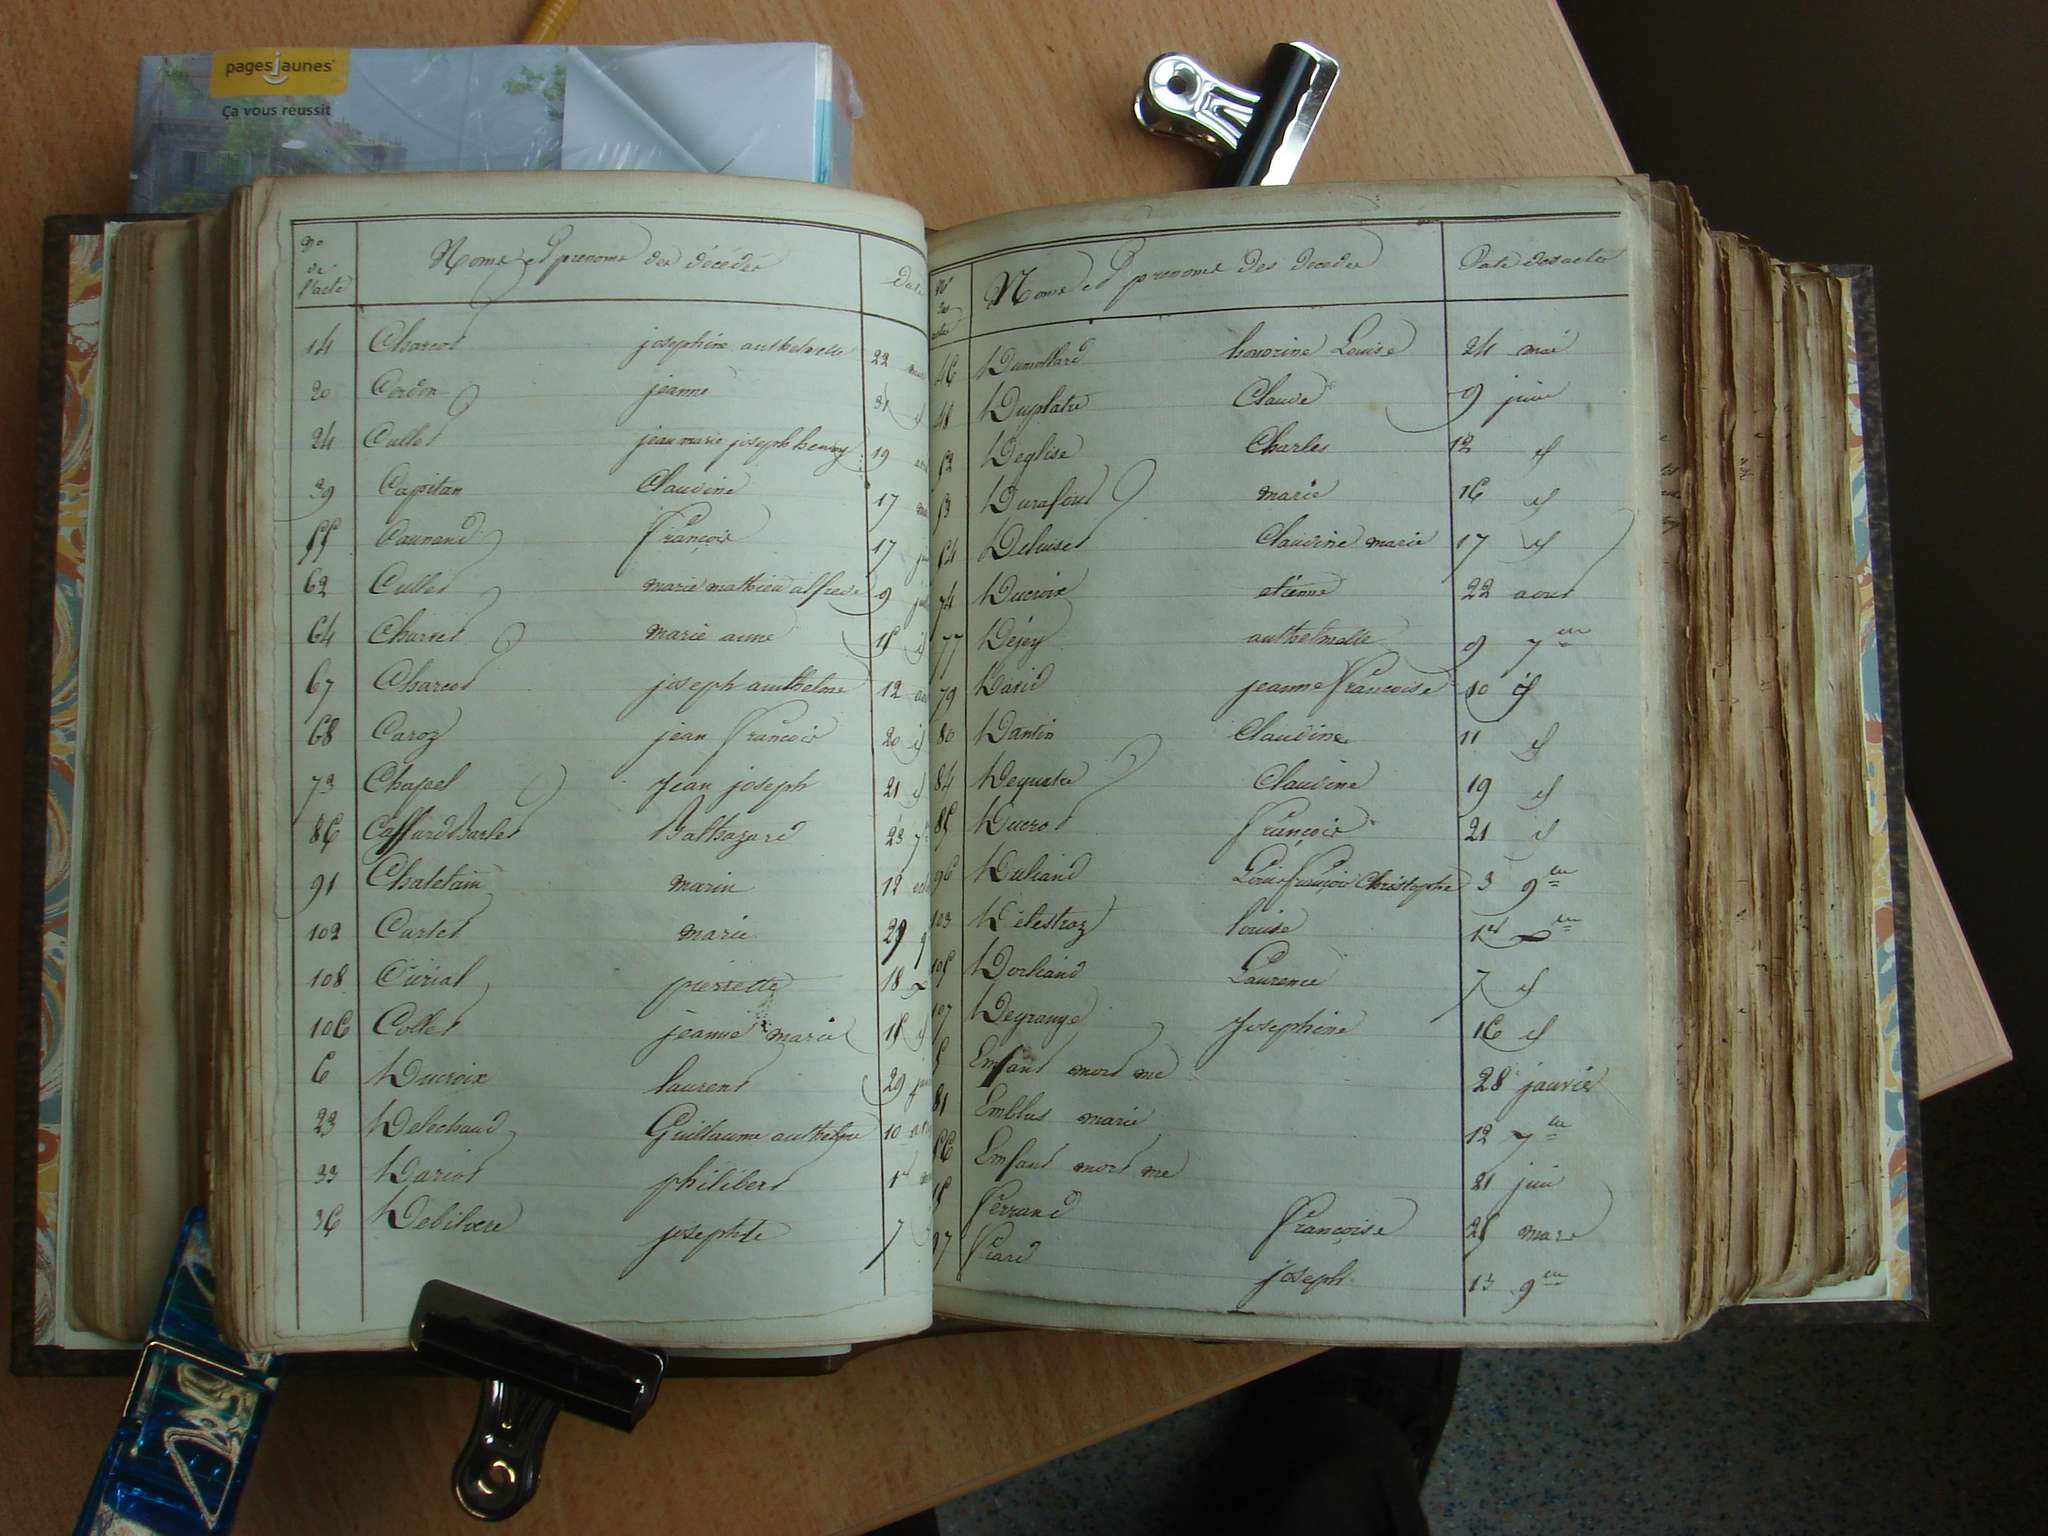 pagesjaunes
Ça vous réussit
No de l'acte Noms et prenoms des décédés Date
14 Charcot josephine anthelmette 22
20 Cordon jeanne 31 id
24 Cullet jean marie joseph henry 19
39 Capitan Claudine 17
55 Caunand François 17
62 Cullet marie mathieu alfred 9
64 Charvet marie anne 15 id
67 Charcot joseph anthelme 12
68 Caroz jean François 20 id
73 Chapel Jean joseph 21 id
86 Caffurd Barlet Balthazard 23
91 Chatelain marin 12
102 Curtet marie 29
108 Curial pierrette 18
106 Collet jeanne marie 15 id
6 Ducroix laurent 29
23 Delechaud Guillaume anthelme 10
33 Dariot philibert 1er
36 Debiloere josephte 7
No des actes Noms et prenoms des décédés Date des actes
46 Dumollard honorine Louise 24 mai
48 Duplatre Claude 9 juin
52 Deglise Charles 12 id
53 Durafort marie 16 id
54 Deluiset Claudine marie 17 id
74 Ducroix etienne 22 aout
77 Dejey anthelmette 9 7bre
79 David jeanne Françoise 10 id
80 Dantin Claudine 11 id
84 Claudine 19 id
85 Ducrot François 21 id
96 Duliand Louis François Christophe 3 9bre
103 Delestraz louise 1er
105 Dorliand Laurence 7 id
107 Degrange Josephine 16 id
5 Enfant mort né 28 janvier
81 Emblus marie 12 7bre
56 Enfant mort né 21 juin
15 Ferrand Françoise 25 mars
97 Picard joseph 13 9bre